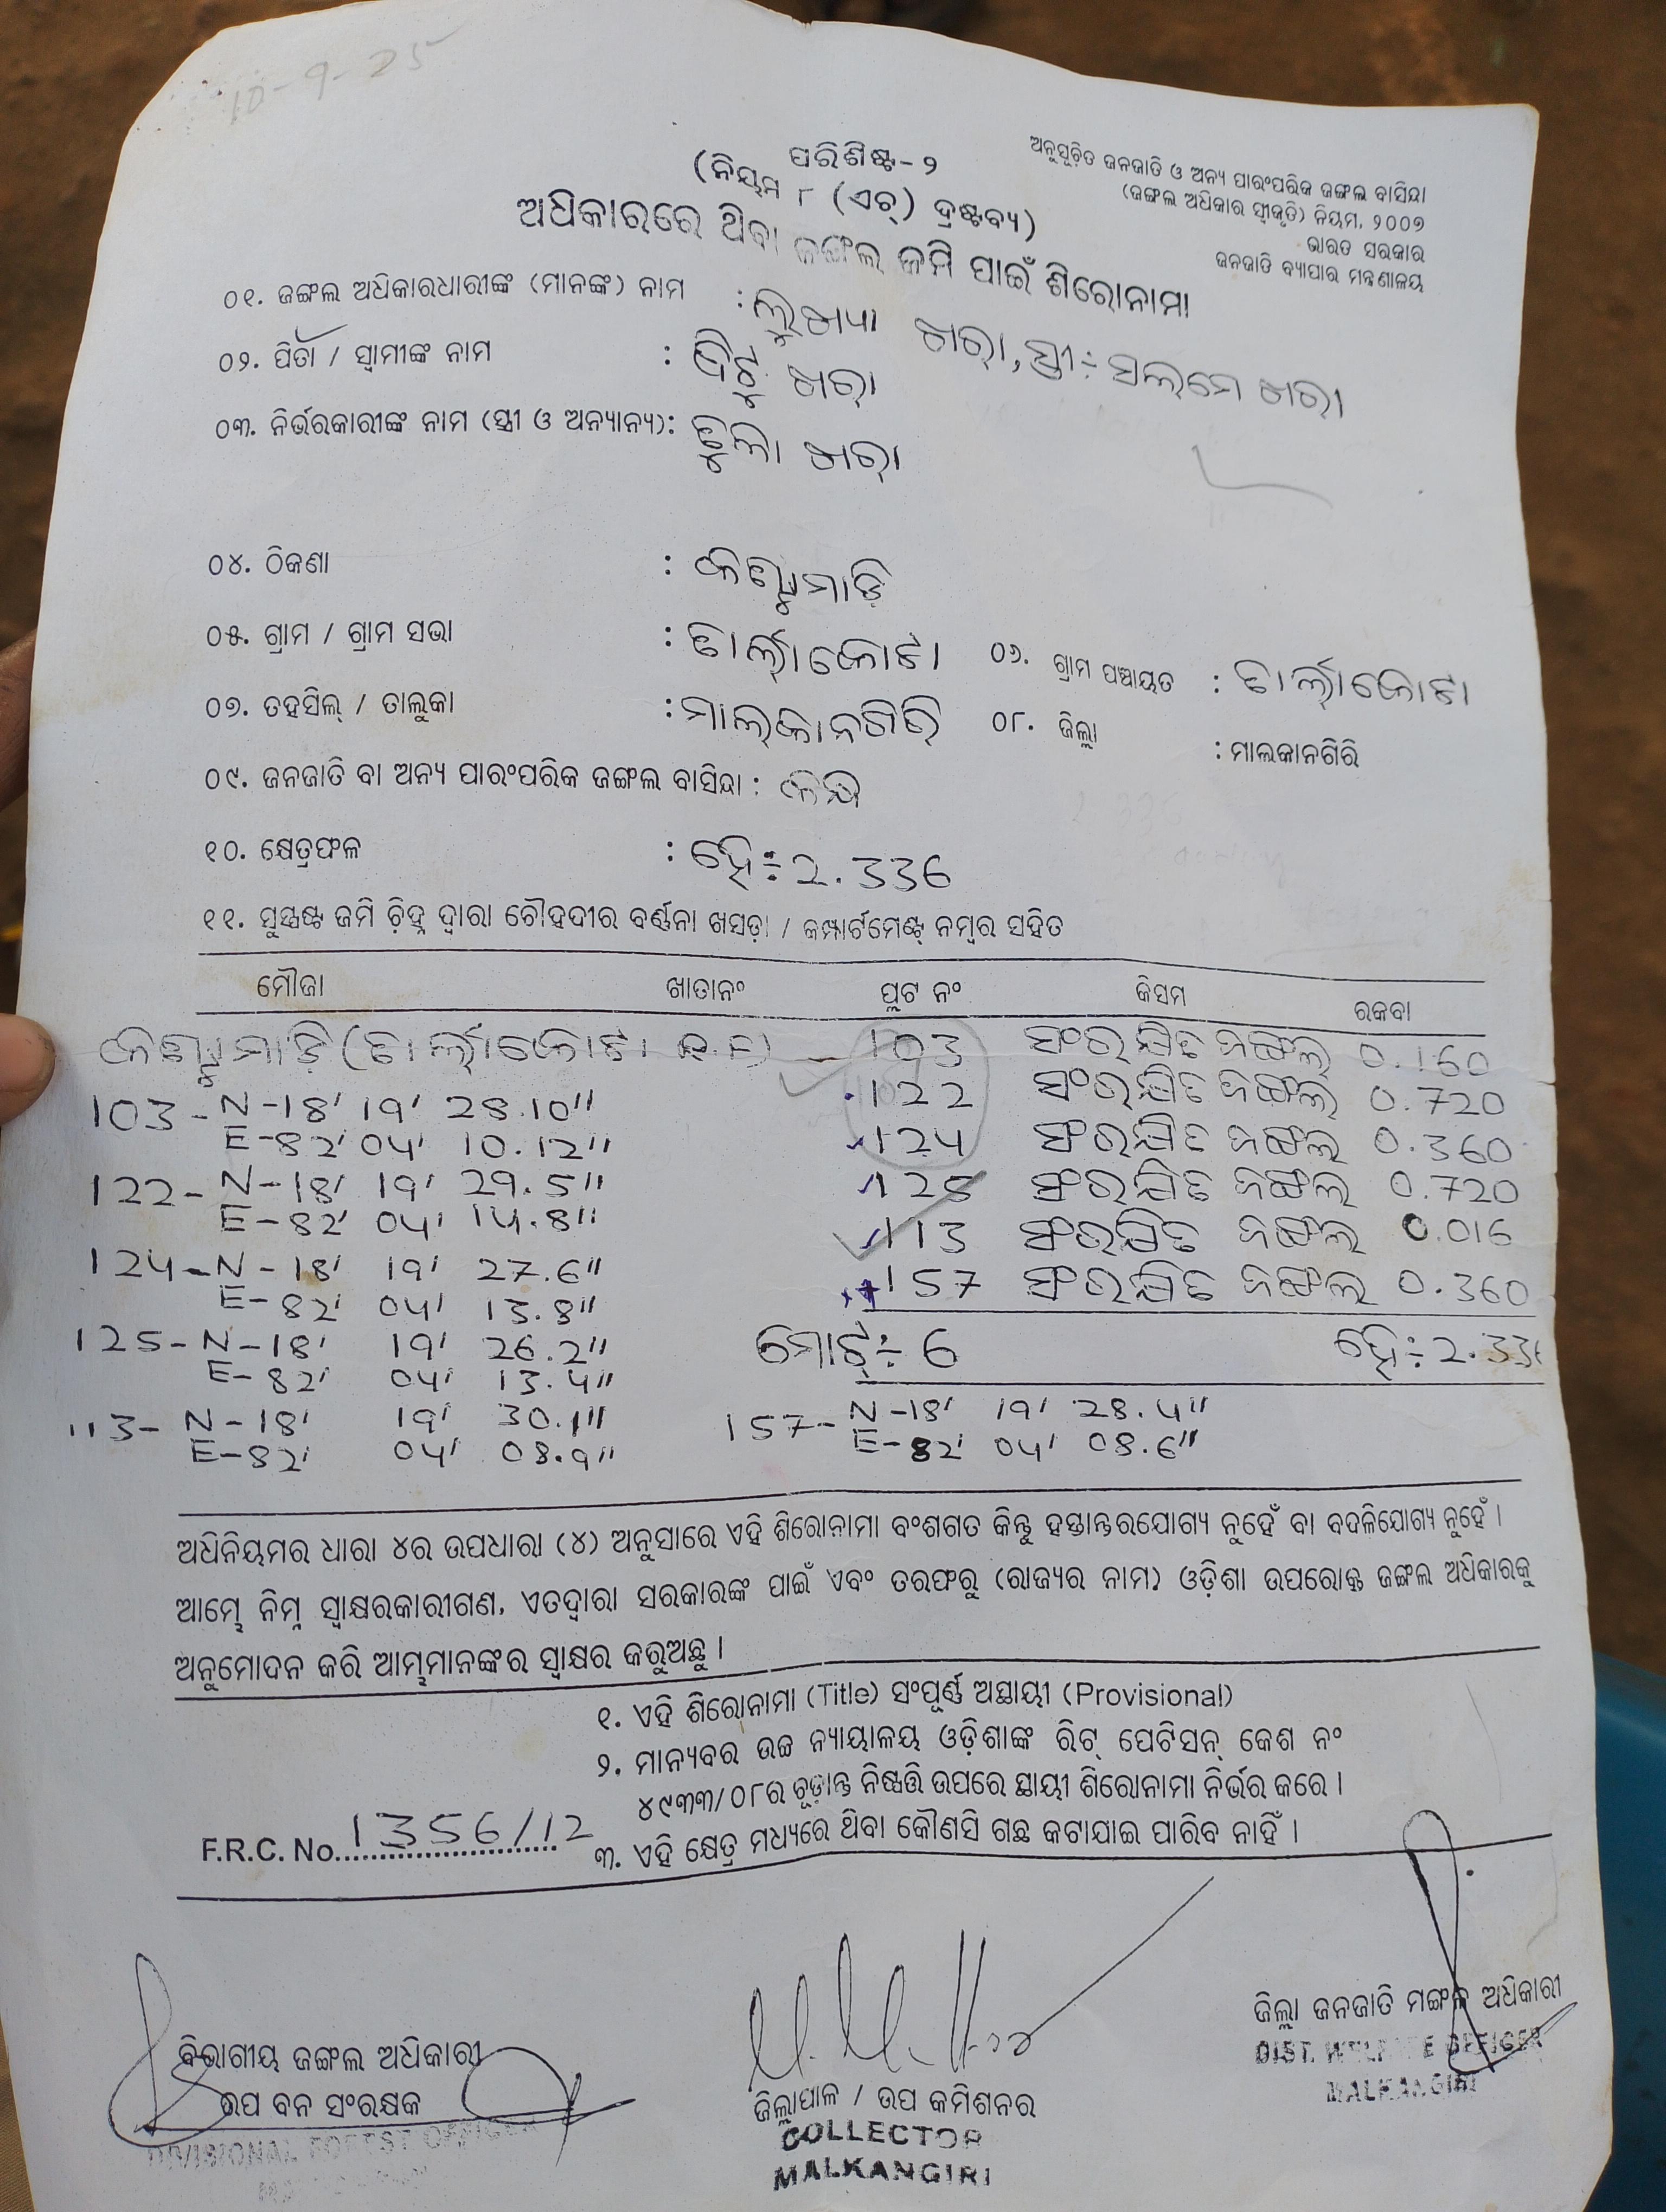 10-9-25
ଅନୁସୂଚିତ ଜନଜାତି ଓ ଅନ୍ୟ ପାରଂପରିକ ଜଙ୍ଗଲ ବାସିନ୍ଦା
(ଜଙ୍ଗଲ ଅଧିକାର ସ୍ୱୀକୃତି) ନିୟମ, ୨୦୦୭
ଭାରତ ସରକାର
ଜନଜାତି ବ୍ୟାପାର ମନ୍ତ୍ରଣାଳୟ
ପରିଶିଷ୍ଟ-୨
(ନିୟମ ୮ (ଏଚ୍) ଦ୍ରଷ୍ଟବ୍ୟ)
ଅଧିକାରରେ ଥିବା ଜଙ୍ଗଲ ଜମି ପାଇଁ ଶିରୋନାମା
୦୧. ଜଙ୍ଗଲ ଅଧିକାରଧାରୀଙ୍କ (ମାନଙ୍କ) ନାମ : ଲୁଖ୍ୟା ଖରା, ସ୍ତ୍ରୀ÷ ସଲମେ ଖରା
୦୨. ପିତା / ସ୍ୱାମୀଙ୍କ ନାମ : ଦିଟୁ ଖରା
୦୩. ନିର୍ଭରକାରୀଙ୍କ ନାମ (ସ୍ତ୍ରୀ ଓ ଅନ୍ୟାନ୍ୟ): ଖରା
୦୪. ଠିକଣା :
୦୫. ଗ୍ରାମ / ଗ୍ରାମ ସଭା : ଟାର୍ଲାକୋଟା ୦୬. ଗ୍ରାମ ପଞ୍ଚାୟତ : ଟାର୍ଲାକୋଟା
୦୭. ତହସିଲ୍ / ତାଲୁକା : ମାଲ୍କାନଗିରି ୦୮. ଜିଲ୍ଲା : ମାଲକାନଗିରି
୦୯. ଜନଜାତି ବା ଅନ୍ୟ ପାରଂପରିକ ଜଙ୍ଗଲ ବାସିନ୍ଦା : କନ୍ଧ
୧୦. କ୍ଷେତ୍ରଫଳ : ହେ÷ 2.336
୧୧. ସୁସ୍ପଷ୍ଟ ଜମି ଚିହ୍ନ ଦ୍ୱାରା ଚୌହଦୀର ବର୍ଣ୍ଣନା ଖସଡ଼ା / କମ୍ପାର୍ଟମେଣ୍ଟ୍ ନମ୍ବର ସହିତ
ମୌଜା ଖାତାନଂ ପ୍ଲଟ ନଂ କିସମ ରକବା
(ଟାର୍ଲାକୋଟା R.F) - 103 ସଂରକ୍ଷିତ ଜଙ୍ଗଲ 0.160
103 - N - 18' 19' 28.10" 122 ସଂରକ୍ଷିତ ଜଙ୍ଗଲ 0.720
E - 82' 04' 10.12" 124 ସଂରକ୍ଷିତ ଜଙ୍ଗଲ 0.360
122 - N - 18' 19' 29.5" 125 ସଂରକ୍ଷିତ ଜଙ୍ଗଲ 0.720
E - 82' 04' 14.8" 113 ସଂରକ୍ଷିତ ଜଙ୍ଗଲ 0.016
124 - N - 18' 19' 27.6" 157 ସଂରକ୍ଷିତ ଜଙ୍ଗଲ 0.360
E - 82' 04' 13.8"
125 - N - 18' 19' 26.2" ମୋଟ୍÷ 6 ହେ÷ 2.336
E - 82' 04' 13.4"
113 - N - 18' 19' 30.1" 157 - N - 18' 19' 28.4"
E - 82' 04' 08.9" E - 82' 04' 08.6"
ଅଧିନିୟମର ଧାରା ୪ର ଉପଧାରା (୪) ଅନୁସାରେ ଏହି ଶିରୋନାମା ବଂଶଗତ କିନ୍ତୁ ହସ୍ତାନ୍ତରଯୋଗ୍ୟ ନୁହେଁ ବା ବଦଳିଯୋଗ୍ୟ ନୁହେଁ ।
ଆମ୍ଭେ ନିମ୍ନ ସ୍ୱାକ୍ଷରକାରୀଗଣ, ଏତଦ୍ୱାରା ସରକାରଙ୍କ ପାଇଁ ଏବଂ ତରଫରୁ (ରାଜ୍ୟର ନାମ) ଓଡ଼ିଶା ଉପରୋକ୍ତ ଜଙ୍ଗଲ ଅଧିକାରକୁ
ଅନୁମୋଦନ କରି ଆମ୍ଭମାନଙ୍କର ସ୍ୱାକ୍ଷର କରୁଅଛୁ ।
୧. ଏହି ଶିରୋନାମା (Title) ସଂପୂର୍ଣ୍ଣ ଅସ୍ଥାୟୀ (Provisional)
୨. ମାନ୍ୟବର ଉଚ୍ଚ ନ୍ୟାୟାଳୟ ଓଡ଼ିଶାଙ୍କ ରିଟ୍ ପେଟିସନ୍ କେଶ ନଂ
୪୯୩୩/୦୮ର ଚୂଡ଼ାନ୍ତ ନିଷ୍ପତ୍ତି ଉପରେ ସ୍ଥାୟୀ ଶିରୋନାମା ନିର୍ଭର କରେ ।
୩. ଏହି କ୍ଷେତ୍ର ମଧ୍ୟରେ ଥିବା କୌଣସି ଗଛ କଟାଯାଇ ପାରିବ ନାହିଁ ।
F.R.C. No. 1356/12
ବିଭାଗୀୟ ଜଙ୍ଗଲ ଅଧିକାରୀ
ଉପ ବନ ସଂରକ୍ଷକ
DIVISIONAL FOREST OFFICER
ଜିଲ୍ଲାପାଳ / ଉପ କମିଶନର
COLLECTOR
MALKANGIRI
ଜିଲ୍ଲା ଜନଜାତି ମଙ୍ଗଳ ଅଧିକାରୀ
DIST. WELFARE OFFICER
MALKANGIRI